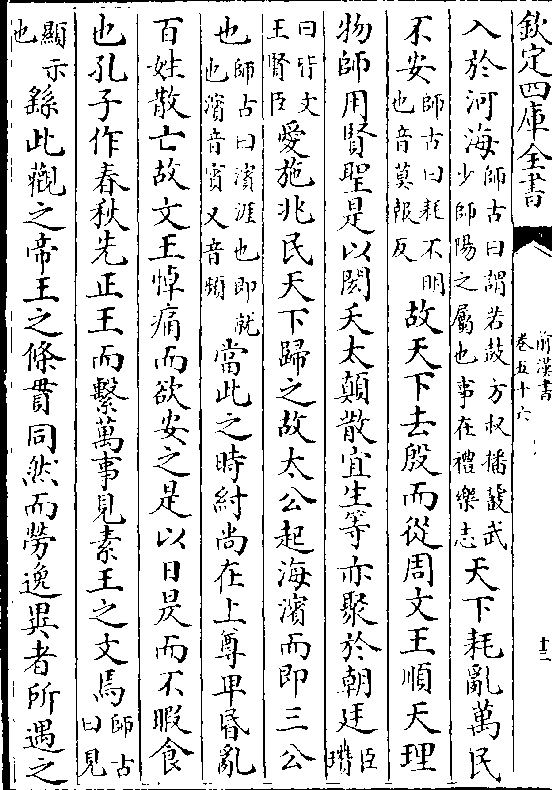 欽定四庫全書
前漢書
卷五十六
十二
入於河海師古曰謂若鼓方叔播鼗武少師陽之屬也事在禮樂志天下耗亂萬民
不安師古曰耗不明也音莫報反故天下去殷而從周文王順天理
物師用賢聖是以閎夭太顛散宜生等亦聚於朝廷臣瓚
曰皆文王賢臣愛施兆民天下歸之故太公起海濵而即三公
也師古曰濵涯也即就也濵音賓又音頻當此之時紂尚在上尊卑昏亂
百姓散亡故文王悼痛而欲安之是以日昃而不暇食
也孔子作春秋先正王而繫萬事見素王之文焉師古曰見
顯示也繇此觀之帝王之條貫同然而勞逸異者所遇之